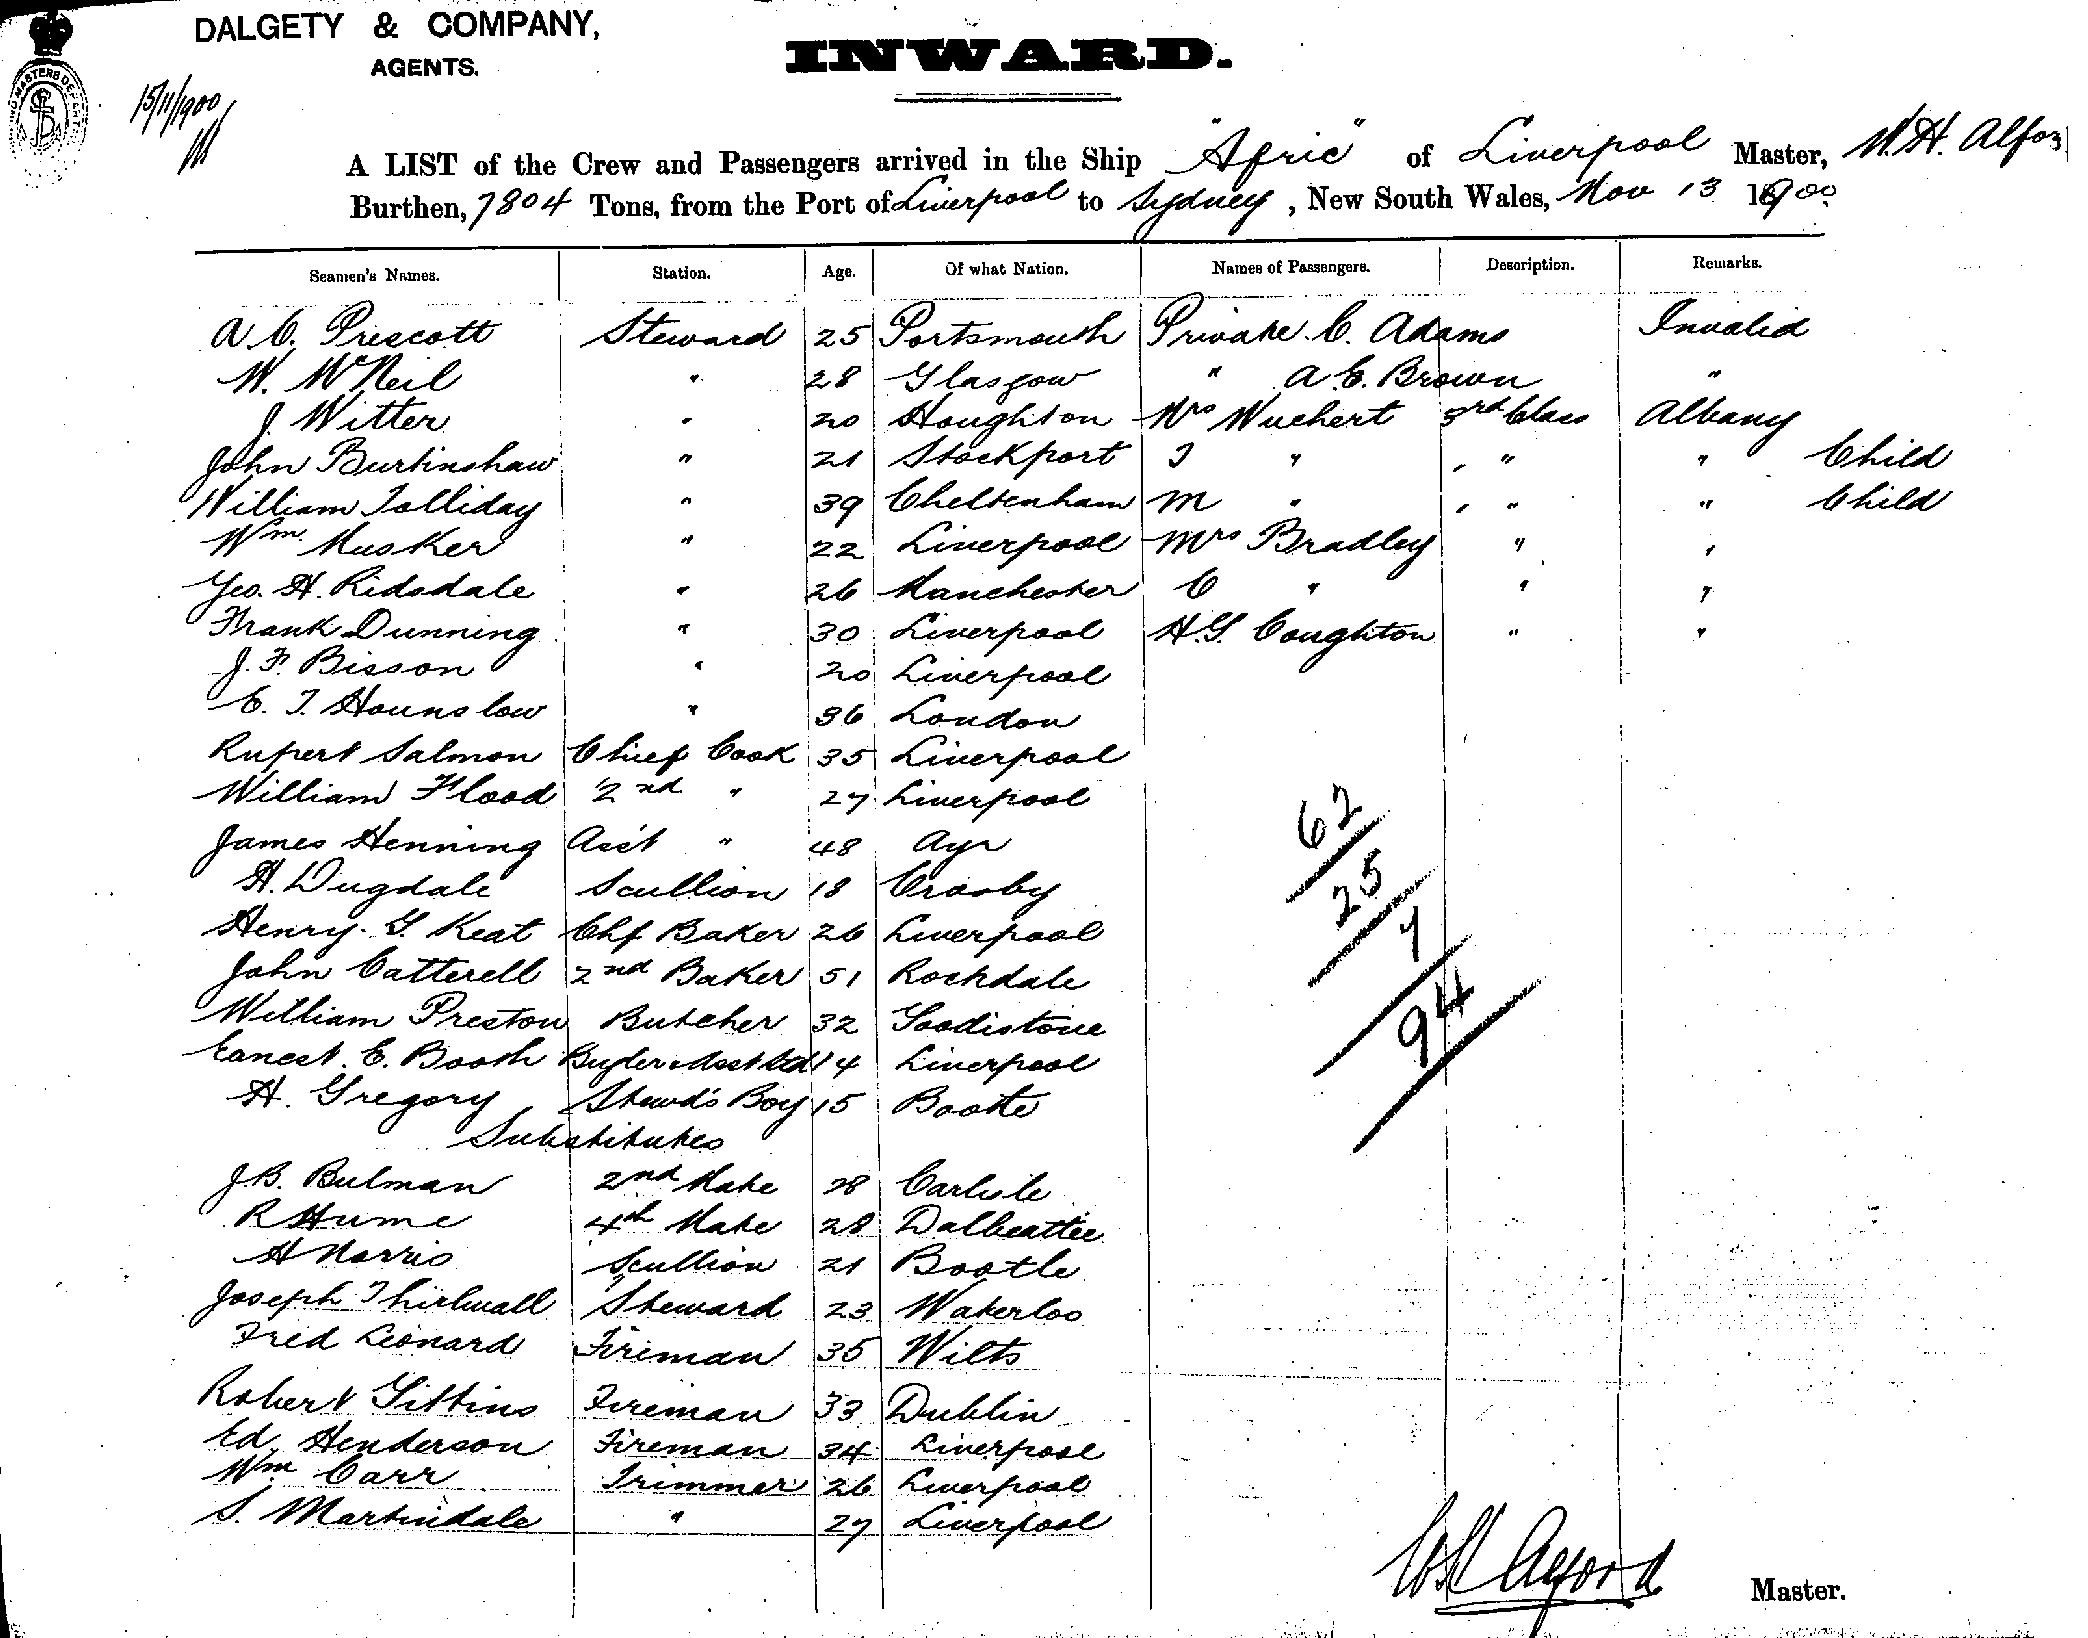 DALGETY & COMPANY,
AGENTS.
INWARD.
15/11/1900
A LIST of the Crew and Passengers arrived in the Ship "Afric" of Liverpool Master, W. H. Alfor
Burthen, 7804 Tons, from the Port of Liverpool to Sydney, New South Wales, Nov 13 1900
Seamen's Names. Station. Age. Of what Nation. Names of Passengers. Description. Remarks.
A C. Prescott Steward 25 Portsmouth Private C. Adams Invalid
W. McNeil " 28 Glasgow " A. E. Brown "
J. Witter " 20 Houghton Mrs Wuchert 3rd Class Albany
John Burtinshaw " 21 Stockport I " " " Child
William Tolliday " 39 Cheltenham M " " " Child
Wm. Musker " 22 Liverpool Mrs Bradley " "
Geo. H. Ridsdale " 26 Manchester C " " "
Frank Dunning " 30 Liverpool H. G. Coughton " "
J. F. Bisson " 20 Liverpool
C. T. Hounslow " 36 London
Rupert Salmon Chief Cook 35 Liverpool
William Flood 2nd " 27 Liverpool
James Henning Asst " 48 Ayr
H. Dugdale Scullion 18 Crosby
Henry. G. Keat Chf Baker 26 Liverpool
John Catterell 2nd Baker 51 Rochdale
William Preston Butcher 32 Goodistone
Ernest. E. Booth 14 Liverpool
H. Gregory Stewd's Boy 15 Bootle
Substitutes
J B. Bulman 2nd Mate 28 Carlisle
R Hume 4th Mate 28 Dalbeattie
H Norris Scullion 21 Bootle
Joseph Thirlwall Steward 23 Waterloo
Fred Leonard Fireman 35 Wilts
Robert Gittins Fireman 33 Dublin
Ed. Henderson Fireman 34 Liverpool
Wm Carr Trimmer 26 Liverpool
S. Martindale " 27 Liverpool
62
25
7
94
W H Alford Master.